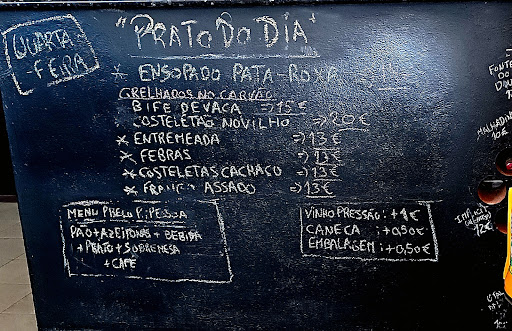 QUARTA-
FEIRA
"PRATO DO DIA"
* ENSOPADO PATA-ROXA
GRELHADOS NO CARVÃO
BIFE DE VACA => 15€
COSTELETÃO NOVILHO => 20€
* ENTREMEADA => 13€
* FEBRAS => 13€
* COSTELETAS CACHAÇO => 13€
* ASSADO => 13€
MENU P/ PESSOA
PÃO + AZEITONAS + BEBIDA
+ PRATO + SOBREMESA
+ CAFÉ
VINHO PRESSÃO: +1€
CANECA : +0,50€
EMBALAGEM : +0,50€
FONTE
DO
10€
12€